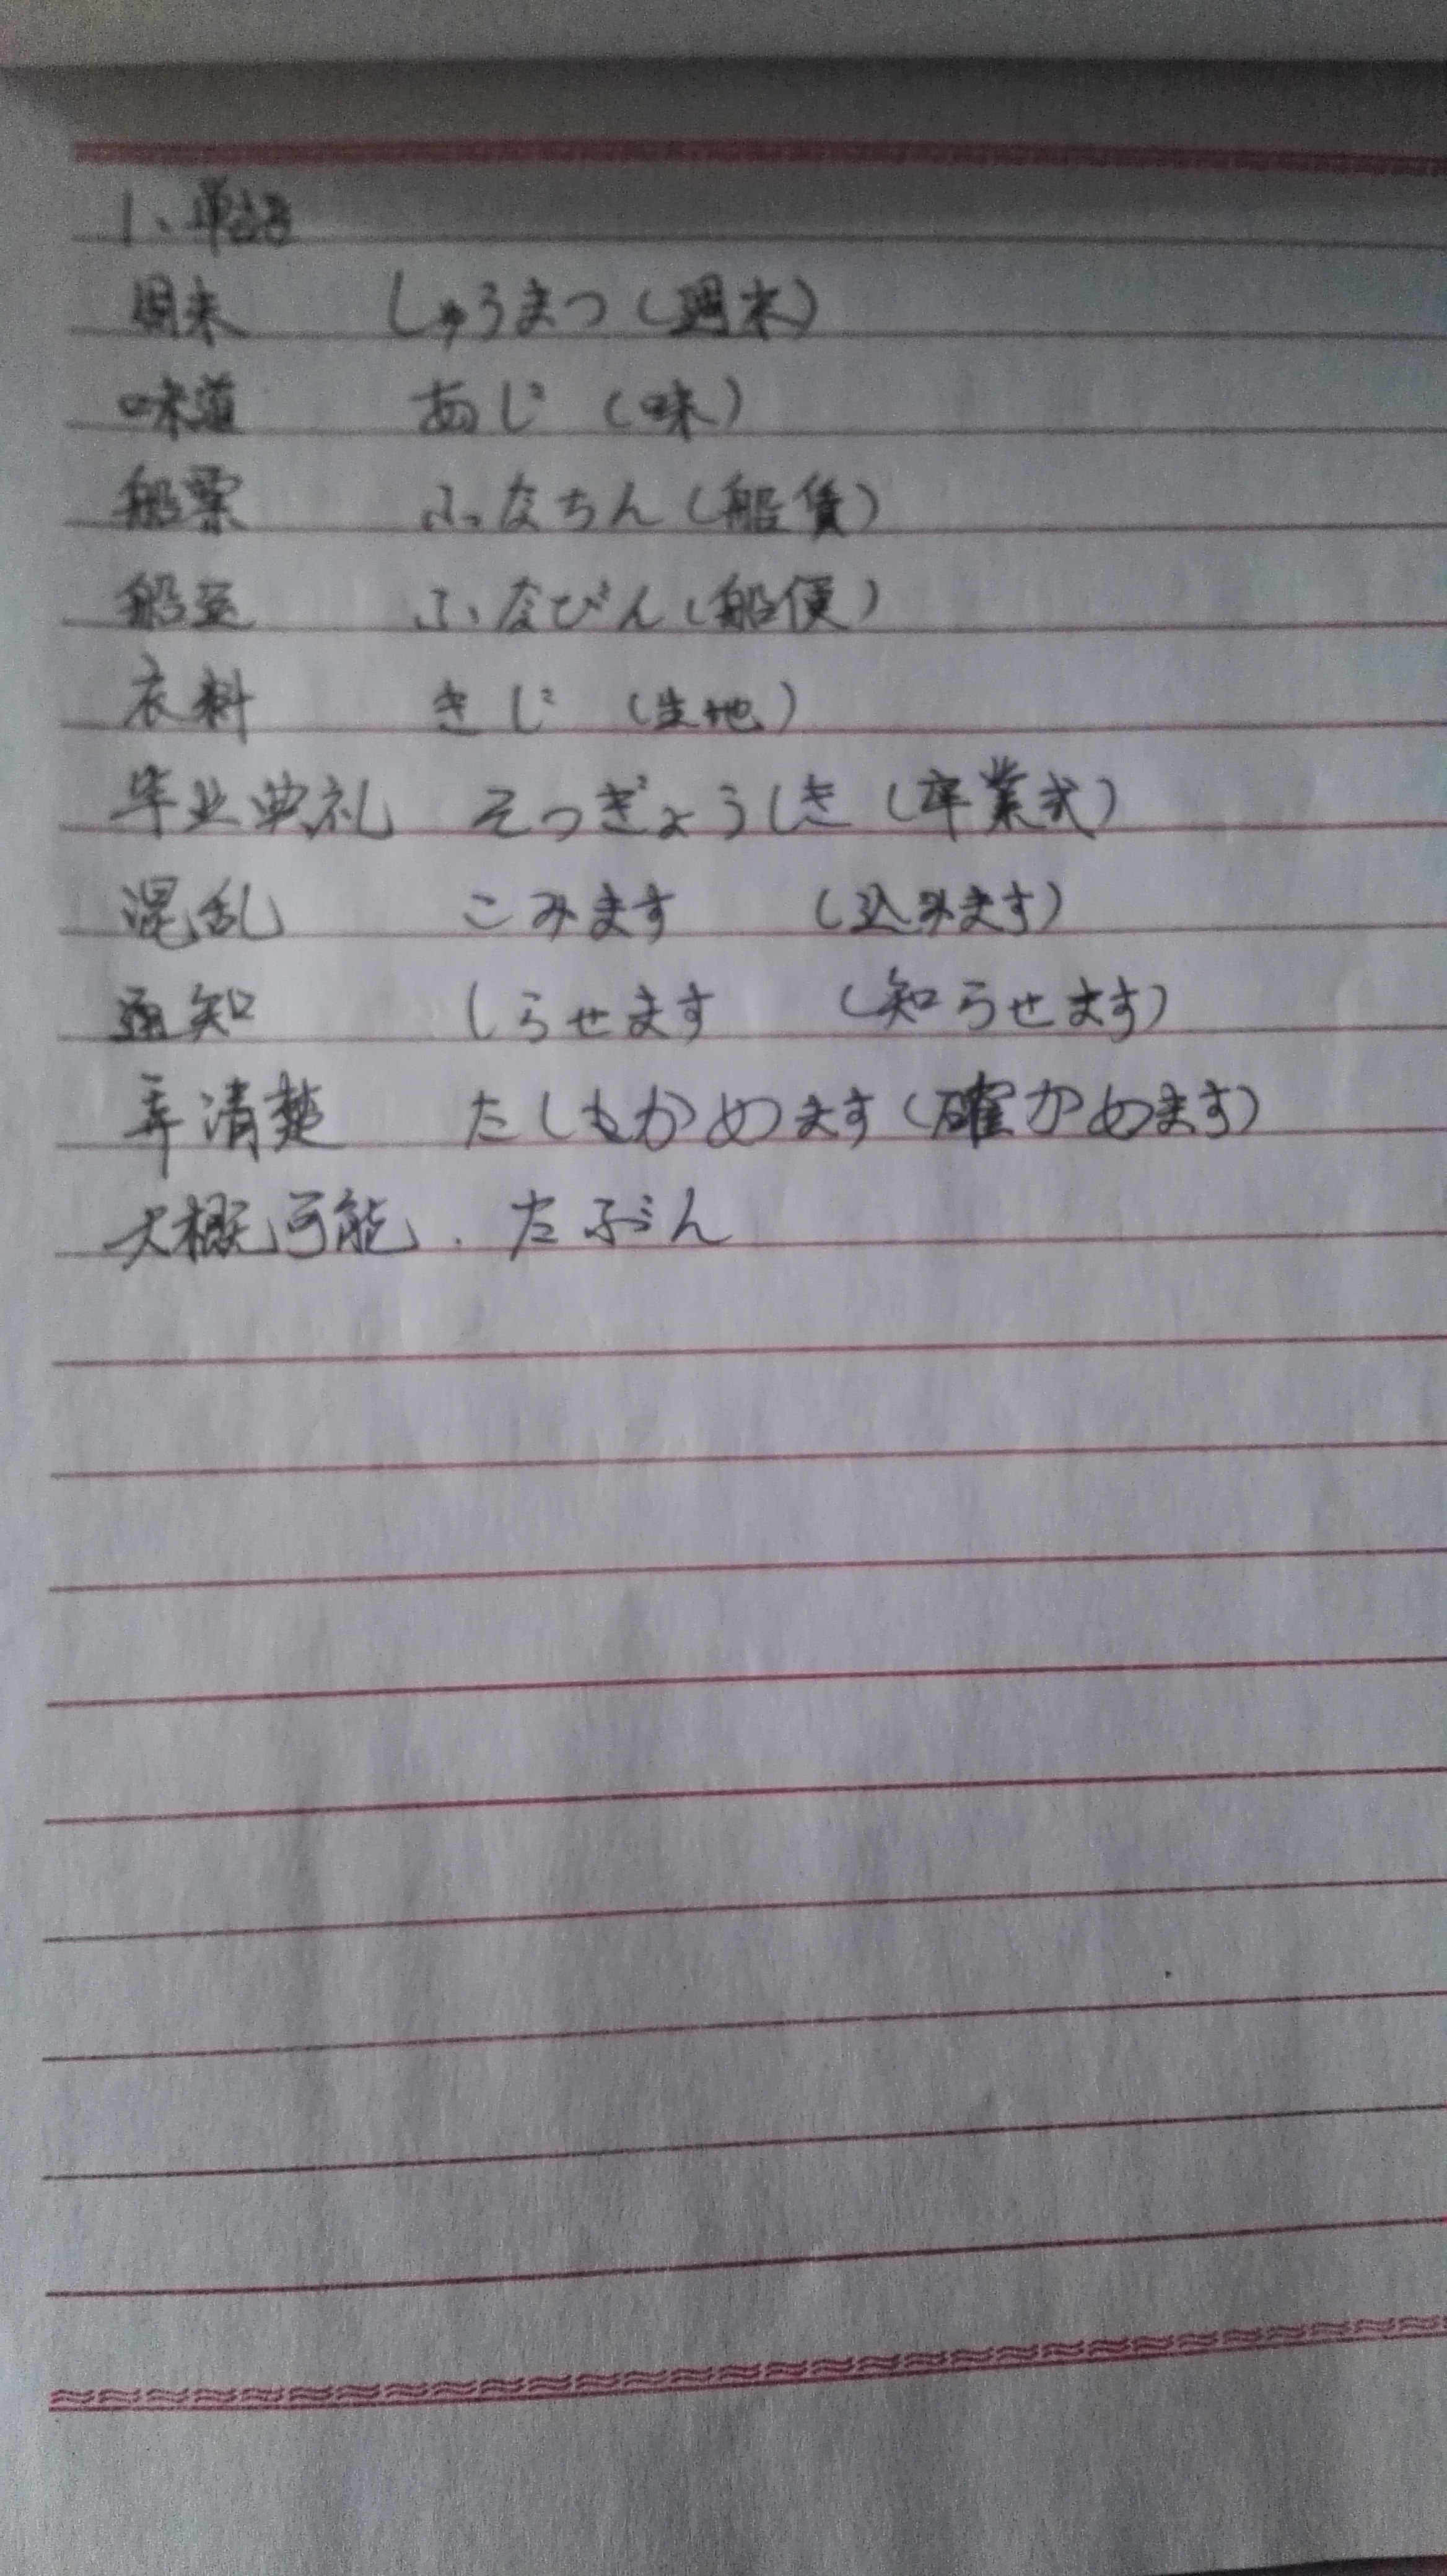 1、単語
周末 しゅうまつ(週末)
味道 あじ (味)
船票 ふなちん(船賃)
船运 ふなびん(船便)
衣料 きじ (生地)
毕业典礼 そつぎょうしき(卒業式)
混乱 こみます (込みます)
通知 しらせます (知らせます)
弄清楚 たしもかめます(確かめます)
大概可能. たぶん